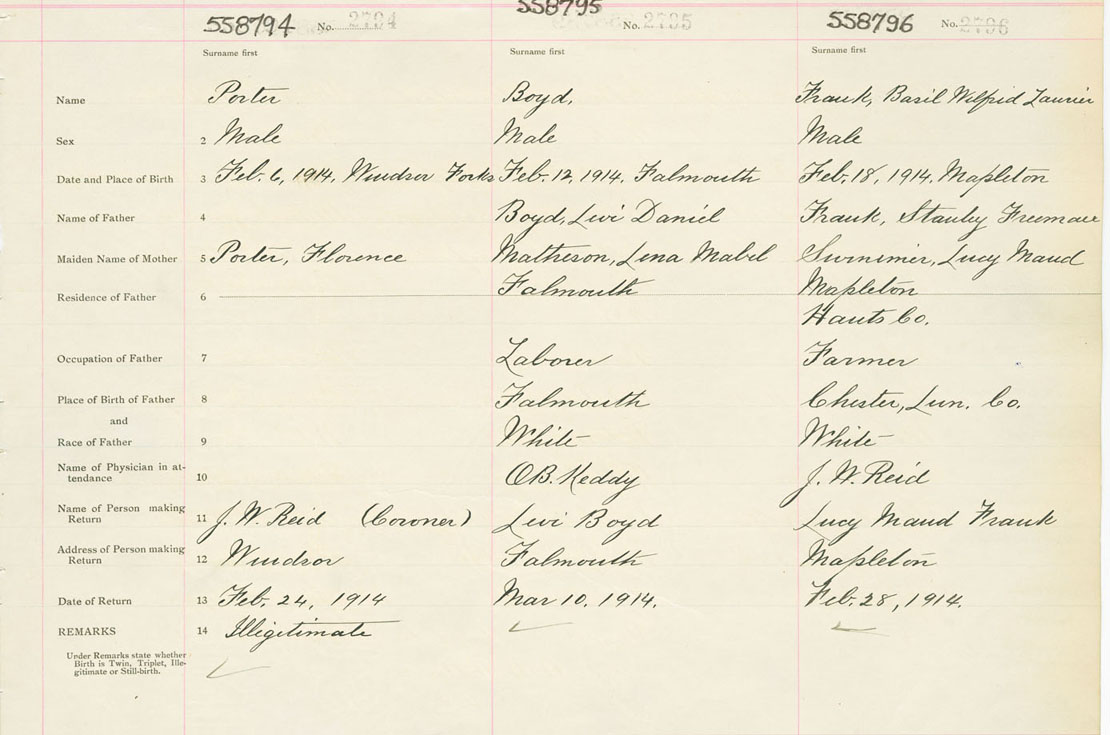 558794 No. 2794 558795 No. 2795 558796 No. 2796
Surname first Surname first Surname first
Name Porter Boyd, Frank, Basil Wilfrid Laurier
Sex 2 Male Male Male
Date and Place of Birth 3 Feb. 6, 1914. Windsor Forks Feb. 12, 1914. Falmouth Feb. 18, 1914. Mapleton
Name of Father 4 Boyd, Levi Daniel Frank, Stanley Freeman
Maiden Name of Mother 5 Porter, Florence Matheson, Lena Mabel Lucy Maud
Residence of Father 6 Falmouth Mapleton
Hants Co.
Occupation of Father 7 Laborer Farmer
Place of Birth of Father 8 Falmouth Chester, Lun. Co.
and
Race of Father 9 White White
Name of Physician in at-
tendance 10 O.B. Keddy J. W. Reid
Name of Person making
Return 11 J. W. Reid (Coroner) Levi Boyd Lucy Maud Frank
Address of Person making
Return 12 Windsor Falmouth Mapleton
Date of Return 13 Feb. 24, 1914 Mar 10. 1914. Feb. 28, 1914.
REMARKS 14 Illigitimate
Under Remarks state whether
Birth is Twin, Triplet, Ille-
gitimate or Still-birth.